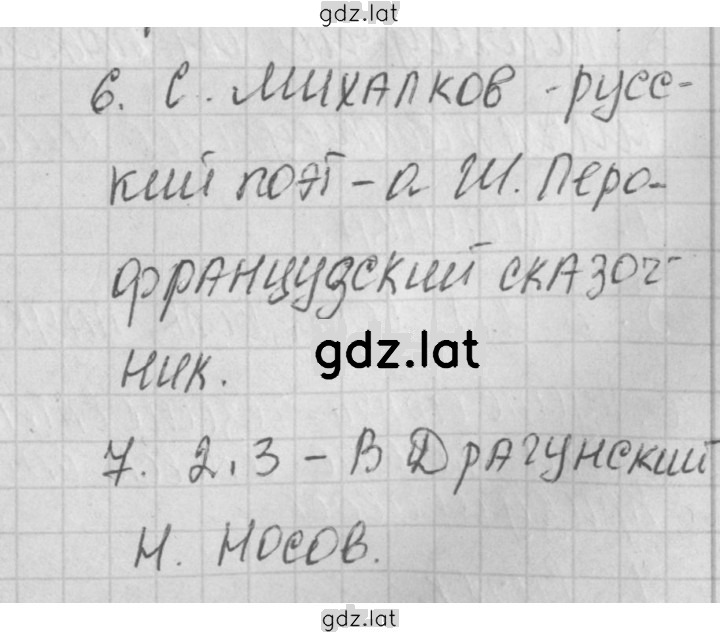 gdz.lat
6. С. Михалков - русс-
кий поэт - а Ш. Перо -
французский сказоч-
ник.
gdz.lat
7. 2, 3 - В Драгунский
Н. Носов.
gdz.lat